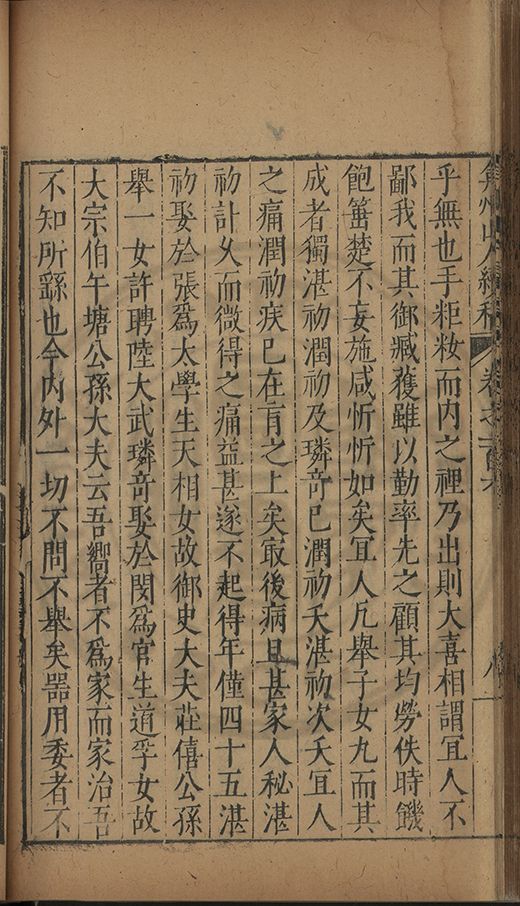 弇州山人續稿 卷之一百六 八
乎無也手粔籹而内之裡乃出則大喜相謂宜人不
鄙我而其御臧獲雖以勤率先之顧其均勞佚時饑
飽箠楚不妄施咸忻忻如矣宜人凡舉子女九而其
成者獨湛初潤初及璘竒已潤初夭湛初次夭宜人
之痛潤初疾已在肓之上矣㝡後病且甚家人秘湛
初計久而微得之痛益甚遂不起得年僅四十五湛
初娶於張爲太學生天相女故御史大夫莊僖公孫
舉一女許聘陸大武璘竒娶於閔爲官生道孚女故
大宗伯午塘公孫大夫云吾嚮者不爲家而家治吾
不知所繇也今内外一切不問不舉矣噐用委者不